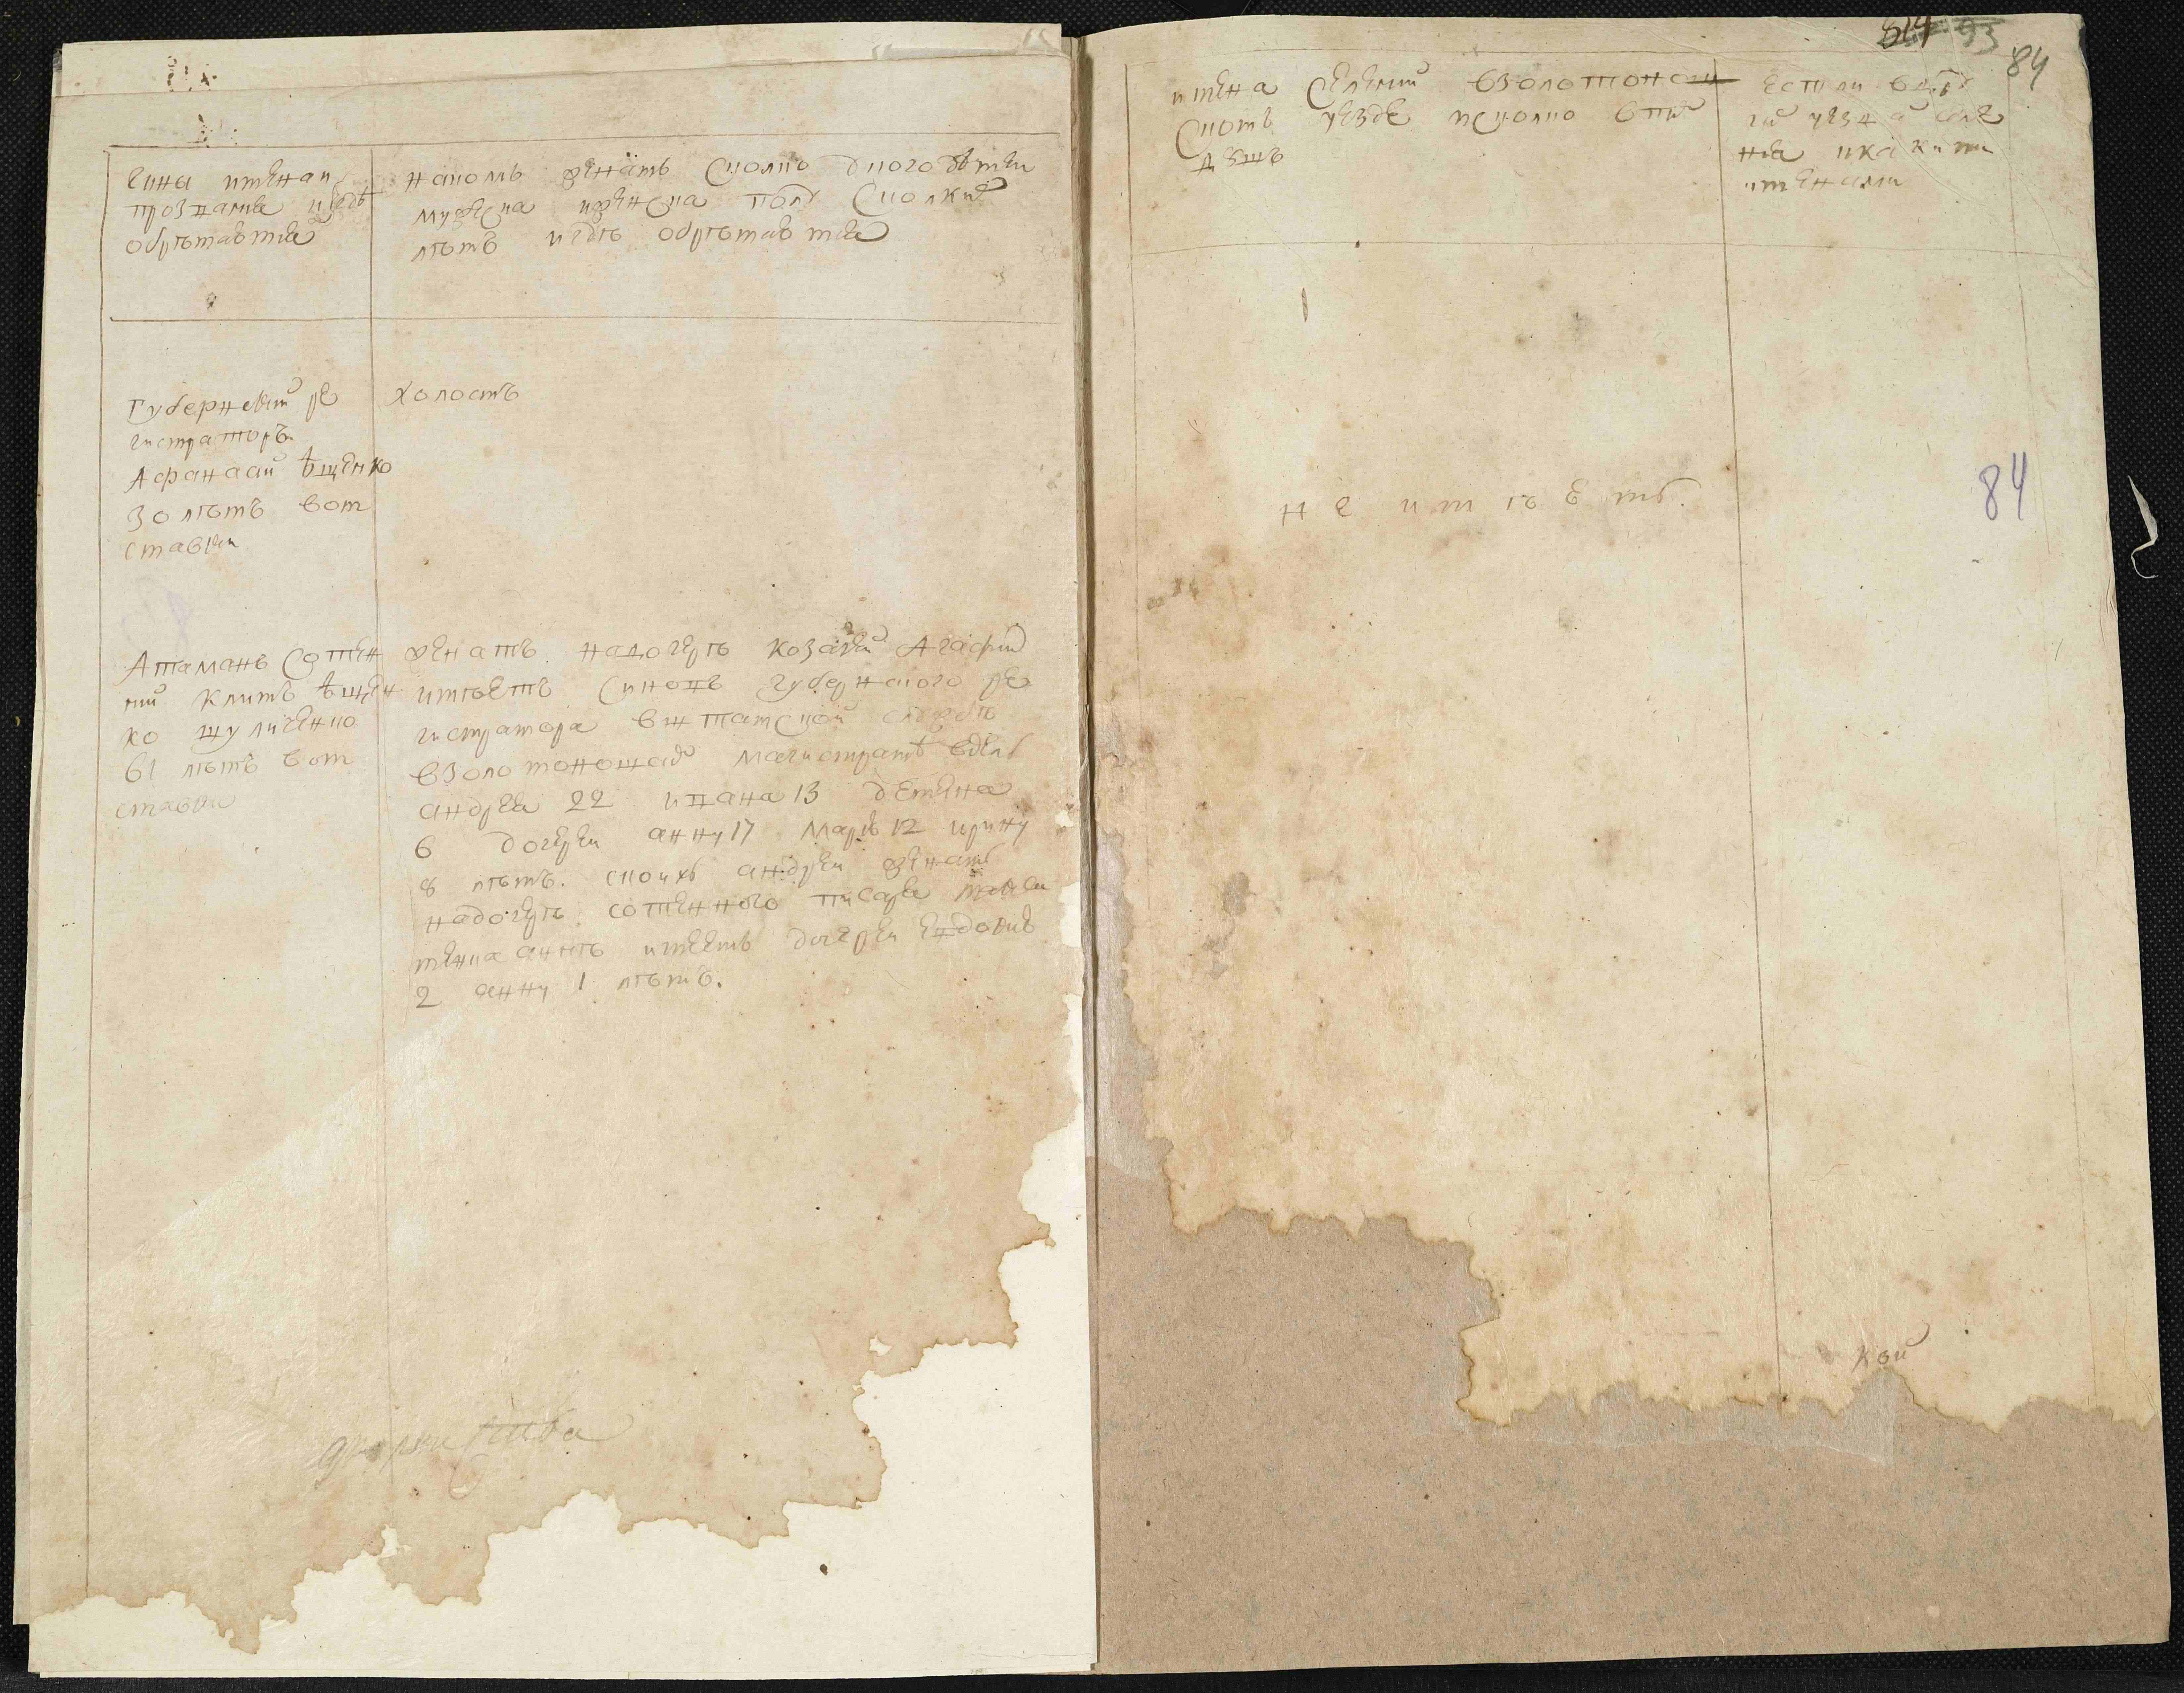 чины имена и
прозвания и где
обретаются
на комъ женатъ сколко у кого детей
мужеска и женска полу сколких
летъ и где обретаются
Губернский ре
гистраторъ
Афанасий Ещенко
30 летъ в от
ставки
холостъ
Атаманъ сотен
ний Климъ Ещен
ко Шуличенко
61 летъ в от
ставки
женатъ на дочере козачей Агафии
имеетъ синовъ губернского ре
гистратора в штатской службе
в золотоношскомъ магистрате в делъ
андрея 22 ивана 13 демяна
6 дочерей анну 17 марию 12 ирину
8 летъ. с коихъ андрей женатъ
на дочере сотенного писаря
анне имеетъ дочерей евдокию
2 анну 1 летъ.
имена селений в золотонош
скомъ уезде и сколко в них
душъ
Если в дру
гих уезда селе
ния и какими
именами
не имеетъ.
кой
814 93
84
84